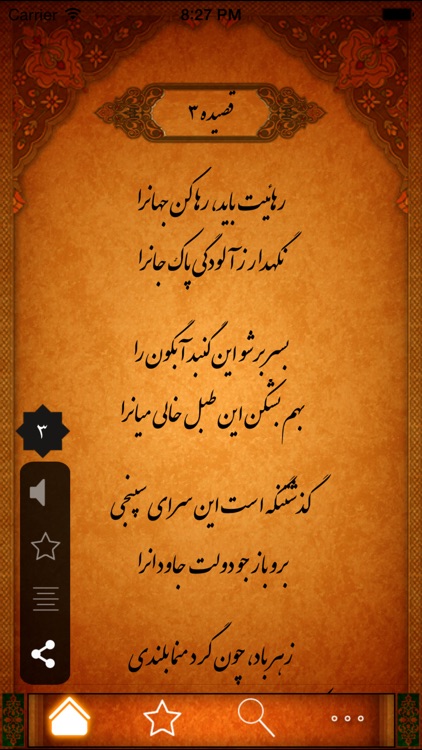 Carrier 8:27 PM
قصیده ۳
رهائیت باید، رها کن جهانرا
نگهدار ز آلودگی پاک جانرا
بسر بر شو این گنبد آبگون را
بهم بشکن این طبل خالی میانرا
گذشتنگه است این سرای سپنجی
برو باز جو دولت جاودانرا
زهر باد، چون گرد منما بلندی
۳